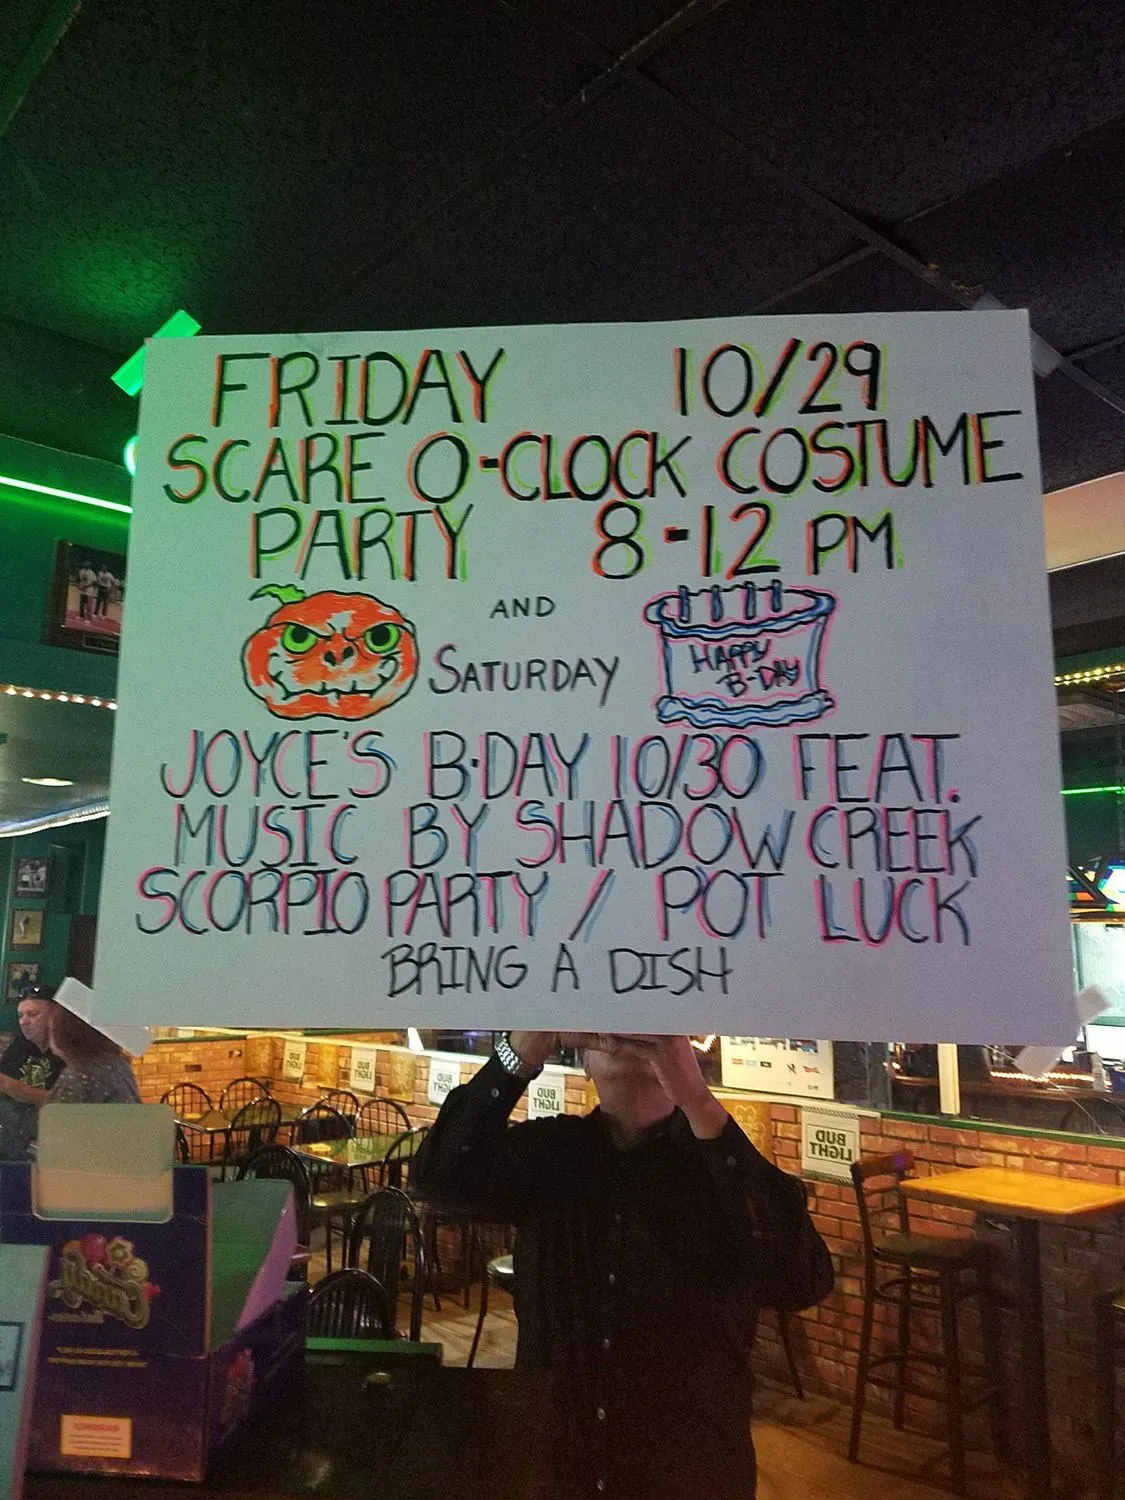 FRIDAY 10/29
SCARE O-CLOCK COSTUME
PARTY 8-12 PM
AND
SATURDAY
HAPPY
B-DAY
JOYCE'S B-DAY 10/30 FEAT.
MUSIC BY SHADOW CREEK
SCORPIO PARTY / POT LUCK
BRING A DISH
BUD
LIGHT
BUD
LIGHT
BUD
LIGHT
BUD
LIGHT
BUD
LIGHT